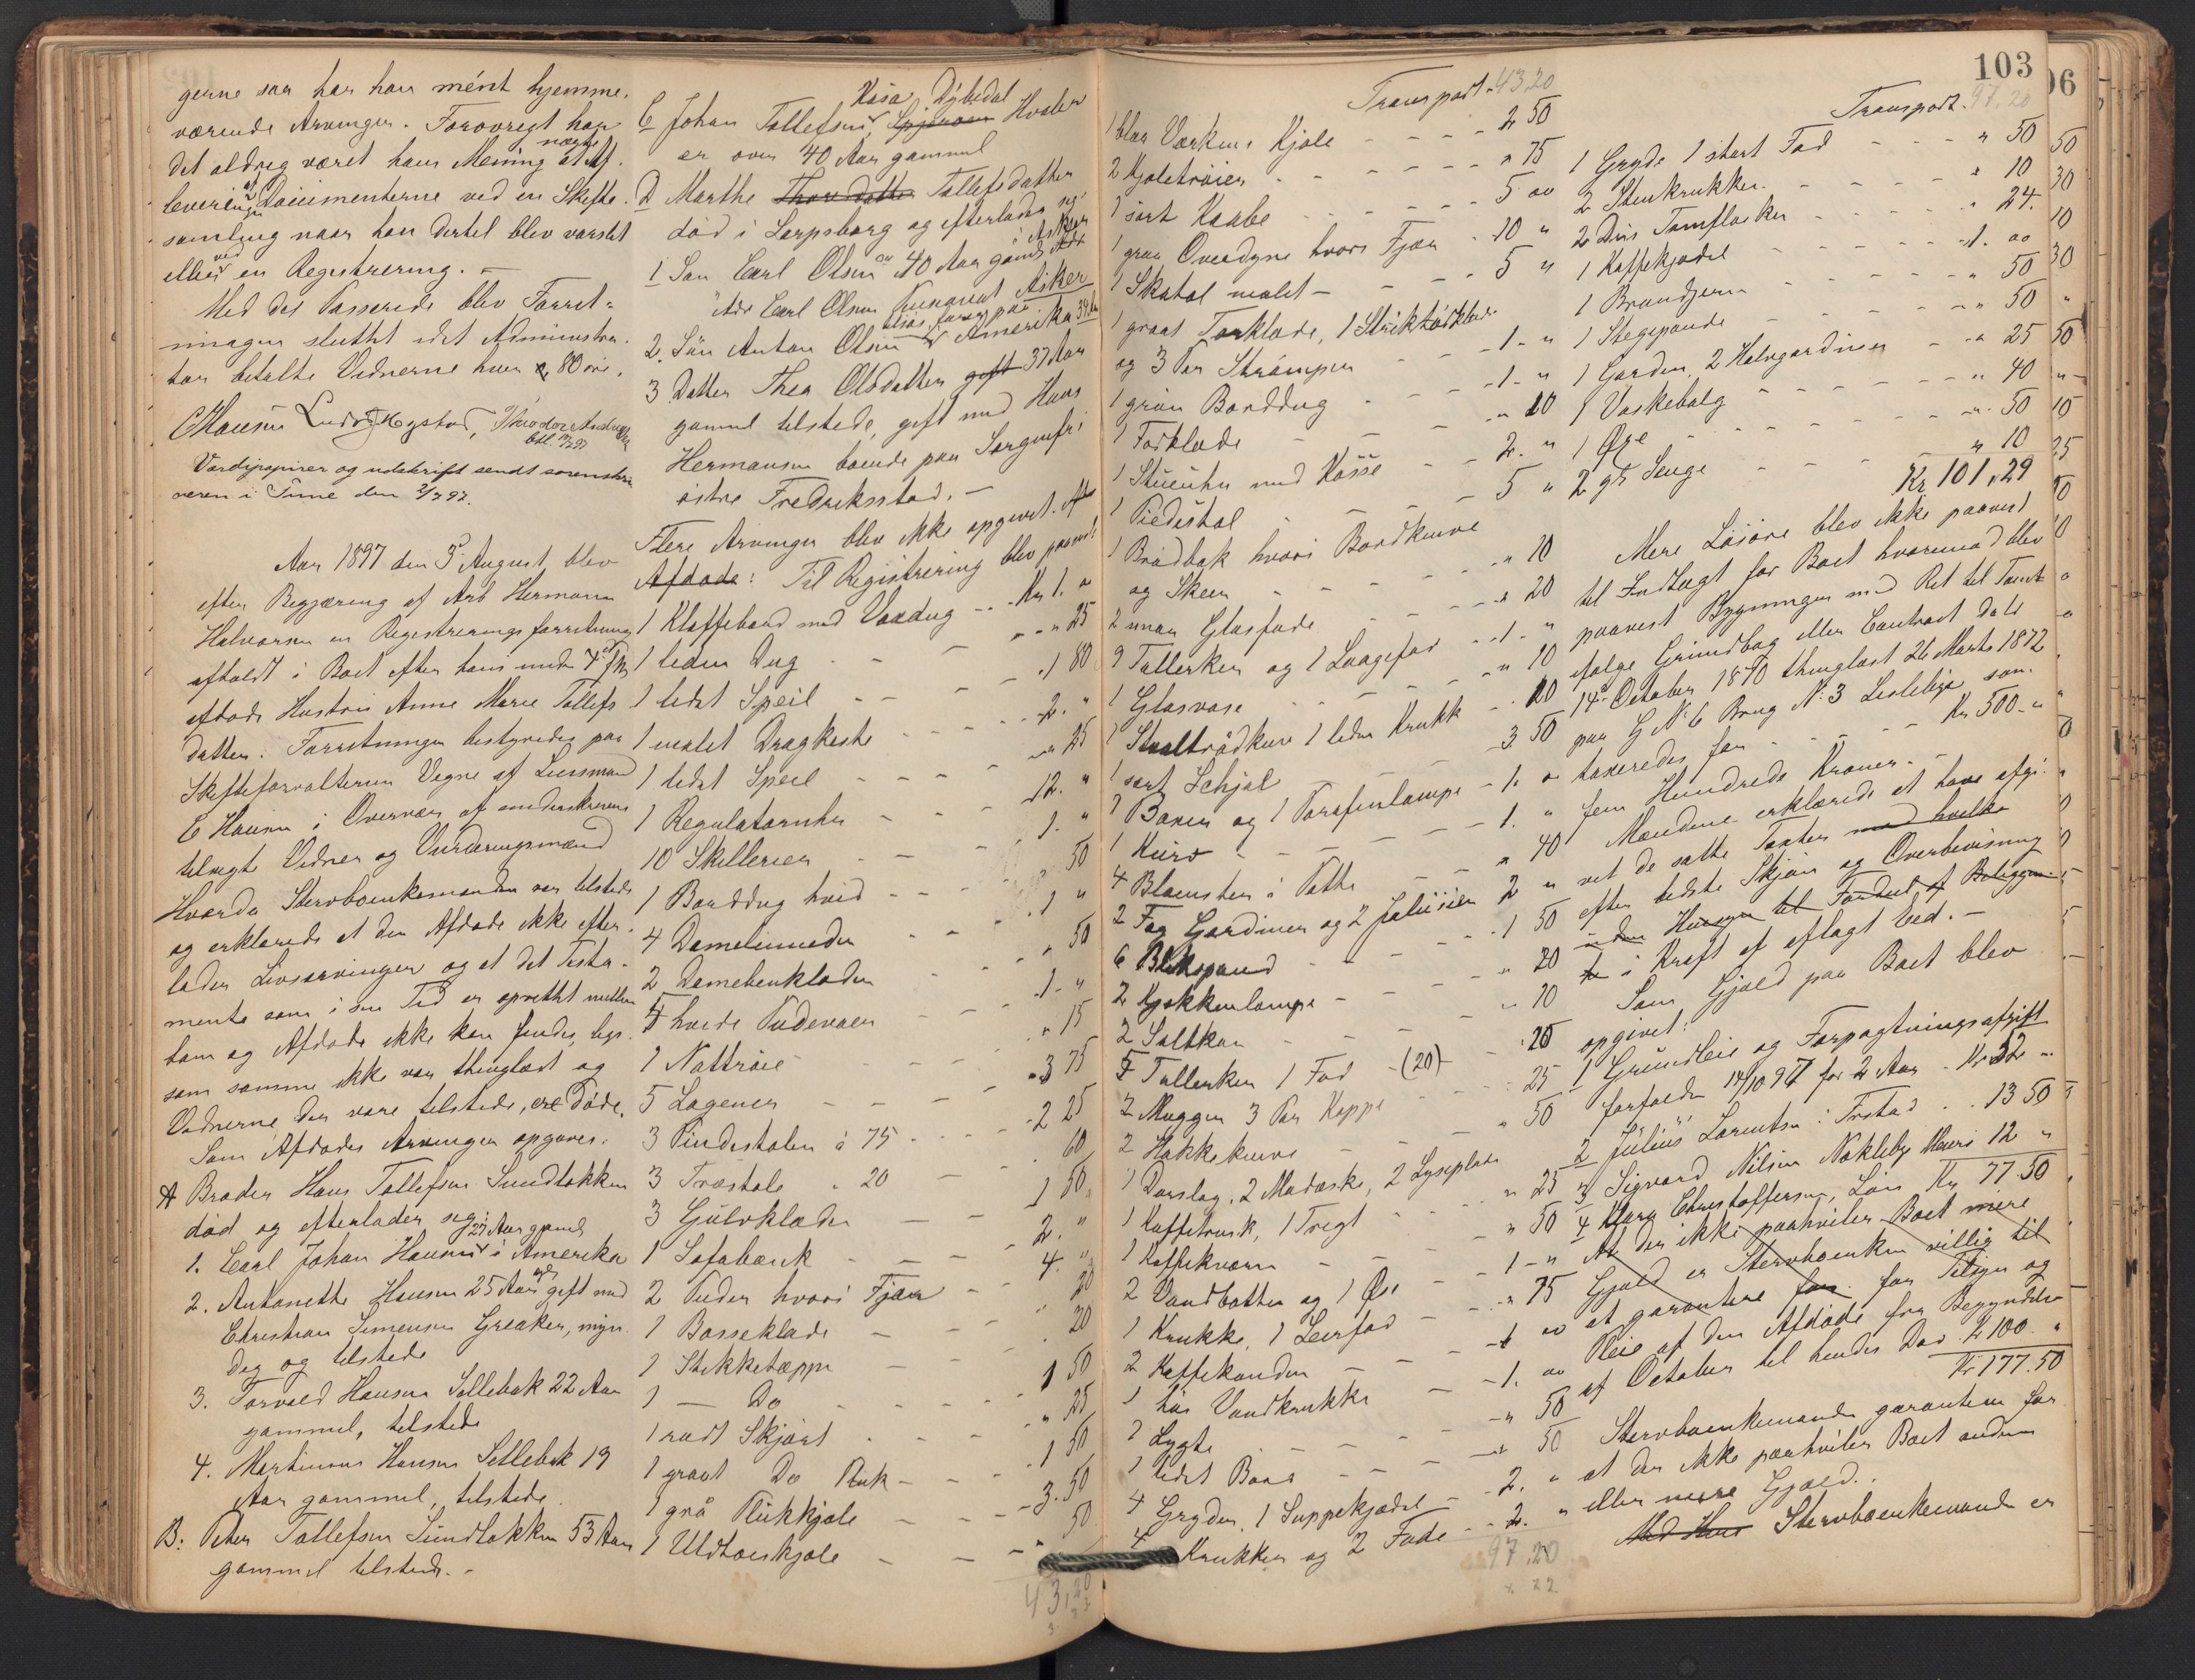 gerne saa har han ment hjemme.
værende Arvinger. Forøvrigt har
det aldrig været hans Mening at nægte Af.
levering af Documenterne ved en Skifte.
samling naar han dertil blev varslet
eller ved en Registrering. –
Med det Passerede blev Forret-
ningen sluttet idet Administra.
tor betalte Vidnerne hver 80 øre.
CHansen Ludv. Hystad, Theodor Andersen
Værdipapirer og udskrift sendt sorenskri
veren i Tune den 2/7 97.
Aar 1897 den 3 August blev
efter Begjæring af Arb Herman
Halvorsen en Registreringsforretning
afholdt i Boet efter hans under 7de
afdøde Hustru Anne Marie Tollefs
datter. Forretningen bestyredes paa
Skifteforvalterens Vegne af Lensmand
C Hansen i Overvær af underskrevne
tilvalgte Vidner og Vurderingsmænd
Hvorda Stervboenkemanden var tilstede
og erklærede at den Afdøde ikke efter.
lader Livsarvinger og at det Testa-
mente som i sin Tid er oprettet mellem
ham og Afdøde ikke kan findes, lige-
som samme ikke var thinglæst og
Vidnerne der vare tilstede, ere døde.
Som Afdødes Arvinger opgaves:
A Broder Hans Tollefsen Sundløkken
død og efterlader sig:
1. Carl Johan Hansen 27 Aar gaml i Amerika
2. Antonette Hansen 25 Aar gl gift med
Christian Simensen Greaker, myn-
dig og tilstede
3. Torvald Hansen Sellebak 22 Aar
gammel, tilstede
4. Martinus Hansen Sellebak 19
Aar gammel, tilstede.
B: Peter Tollefsen Sundløkken 53 Aar
gammel tilstede. –
C Johan Tollefsen, Kasa. Dybedal Hvaler
er over 40 Aar gammel
D Marthe Thoredatter Tollefsdatter
død i Sarpsborg og efterlader sig:
1 Søn Carl Olsen 40 Aar gaml i Asker
Adr Carl Olsen Asker
2. Søn Anton Olsen i Amerika 34 Aar
3 Datter Thea Olsdatter gift 37 Aar
gammel tilstede, gift med Hans
Hermansen boende paa Sorgenfri
østre Fredriksstad. –
Flere Arvinger blev ikke opgivet. After
Afdøde: Til Registrering blev paavist
1 Klaffebord med Voxdug - - Kr 1. "
1 liden Dug - - - " 25
1 lidet Speil - - - 1 80
1 malet Dragkiste - - - 2. "
1 lidet Speil - - - " 25
1 Regulatoruhr - - - 12. "
10 Skillerier - - - 1. "
1 Borddug hvid - - - " 50
4 Damelinneder - - - 1 "
2 Damebenklæder - - - " 50
4 hvide Pudevaer - - - 1 - "
1 Nattrøie - - - " 15
5 Lagener - - - 3 75
3 Pindestolen à 75 - - - 2 25
3 Træstole " 20 - " 60
3 Gulvklæder - - 1 50
1 Sofabænk - - - 2. "
2 Puder hvori Fjær - 4. "
1 Bosseklæde - - - " 20
1 Stikketæppe - - - " 20
1 — Do - - - 1 50
1 rødt Skjørt - - - " 25
1 graat Do Pluk - - - 1 50
1 grå Plukkjole - - 3. 50
1 Uldtøiskjole - - - " 50
43,20
103
Transport 43,20
1 blaa Værkens Kjole - - - - 2 50
2 Kjoletrøier - - - - " 75
1 sort Kaabe - - - - 5 00
1 graa Overdyne hvori Fjær - 10 "
1 Skatol malet - - - - 5 "
1 graat Torklæde, 1 Strikketørklæde
og 3 Par Strømper - - - 1 - "
1 grøn Borddug - - - - 1 - "
1 Forklæde - - - " 20
1 Stueuhr med Kasse - - - 2. "
1 Piedestal - - - 5 "
1 Brødbak hvori Bordknive
og Skeer - - - " 10
2 smaa Glasfade - - - " 20
9 Tallerken og 1 Laagefad - - 1 - "
1 Glasvase - - - " 10
1 Staaltrådkurv 1 liden Krukk - - 20
1 sort Schjal - - - 3 50
1 Boxer og 1 Parafinlampe - 1. "
1 Kurv - - - 1. "
4 Blomster i Potte - - " 40
2 Fag Gardiner og 2 Jalusien 2 "
6 Blikspand - - - 1 50
2 Kjøkkenlampe - - - " 20
2 Saltkar - - - " 10
5 Tallerken 1 Fad - (20) - " 20
2 Mugger 3 Par Koppe - - " 25
2 Hakkeknive - - - " 50
1 Dørslag, 2 Madæske, 2 Lyseplade
1 Kaffetrusk, 1 Tregt - - " 25
1 Kaffekværn - - - " 50
2 Vandbøtter og 1 Øse - - 1 - "
1 Krukke, 1 Leerfad - - " 75
2 Kaffekander - - - 1 00
1 høi Vandkrukke - - 1. 00
1 Lygte - - - " 50
1 lidet Bord - - - " 50
4 Gryder, 1 Suppekjædel - - 2. "
4 Krukker og 2 Fade - - 2. "
97,20
Transport 97,20
1 Gryde 1 stort Fad - - " 50
2 Stenkrukker - - - " 10
2 Dusin Tomflasker - - - " 24.
1 Kaffekjedel - - - 1. 00
1 Brandjern - - - " 50
1 Stegepande - - - " 50
1 Gardin, 2 Halvgardiner - - " 25
1 Vaskebalg - - - " 40
1 Øxe - - - " 50
2 gl Senge - - - " 10
Kr 101,29
Mere Løsøre blev ikke paavist
til Indtægt for Boet hvorimod blev
paavist Bygningen med Ret til Tomt
ifølge Grundbog eller Contract dat
14de October 1870 thinglæst 26 Marts 1872
paa G No 6 Brug No 3 Lisleby som
taxeredes for - - - Kr 500 - "
fem Hundrede Kroner. –
Mændene erklærede at have afgi-
vet de satte Taxter med hvilke
efter bedste Skjøn og Overbevisning
uden Hensyn til Fordeel af Beliggen-
i Kraft af aflagt Eed. –
Som Gjæld paa Boet blev
opgivet:
1 Grundleie og Forpagtningsafgift
forfalden 14/10 97 for 2 Aar - Kr 52 "
2 Julius Lorentsen i Trstad - - 13 50
3 Sigvard Nilsen Nøkleby Meieri 12 "
4 Klara Christoffersen, Løn Kr 77.50
At der ikke paahviler Boet mere
Gjæld er Stervboenkem villig til
at garantere for for Tilsyn og
Pleie af den Afdøde fra Begyndelse
af October til hendes Død Kr 100. "
Kr 177.50
Stervboenkemanden garanterer for
at der ikke paahviler Boet anden
eller mere Gjæld.
Med Hens Stervboenkemanden er